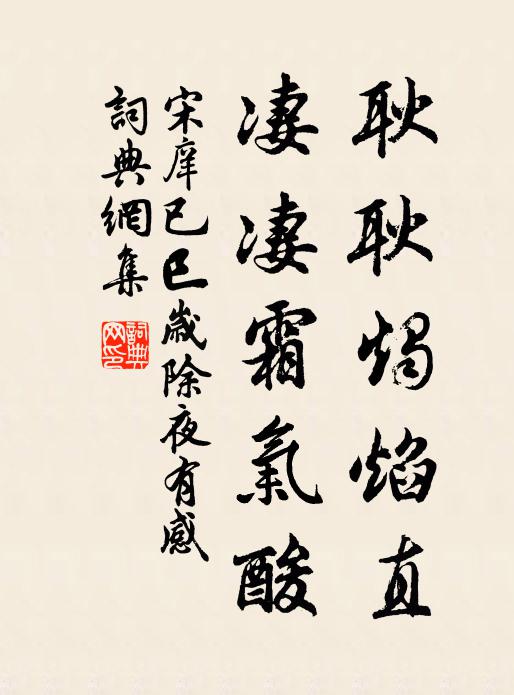 耿耿燭焰直
凄凄霜氣酸
宋庠己巳歲除夜有感
詞典網集
詞典網印